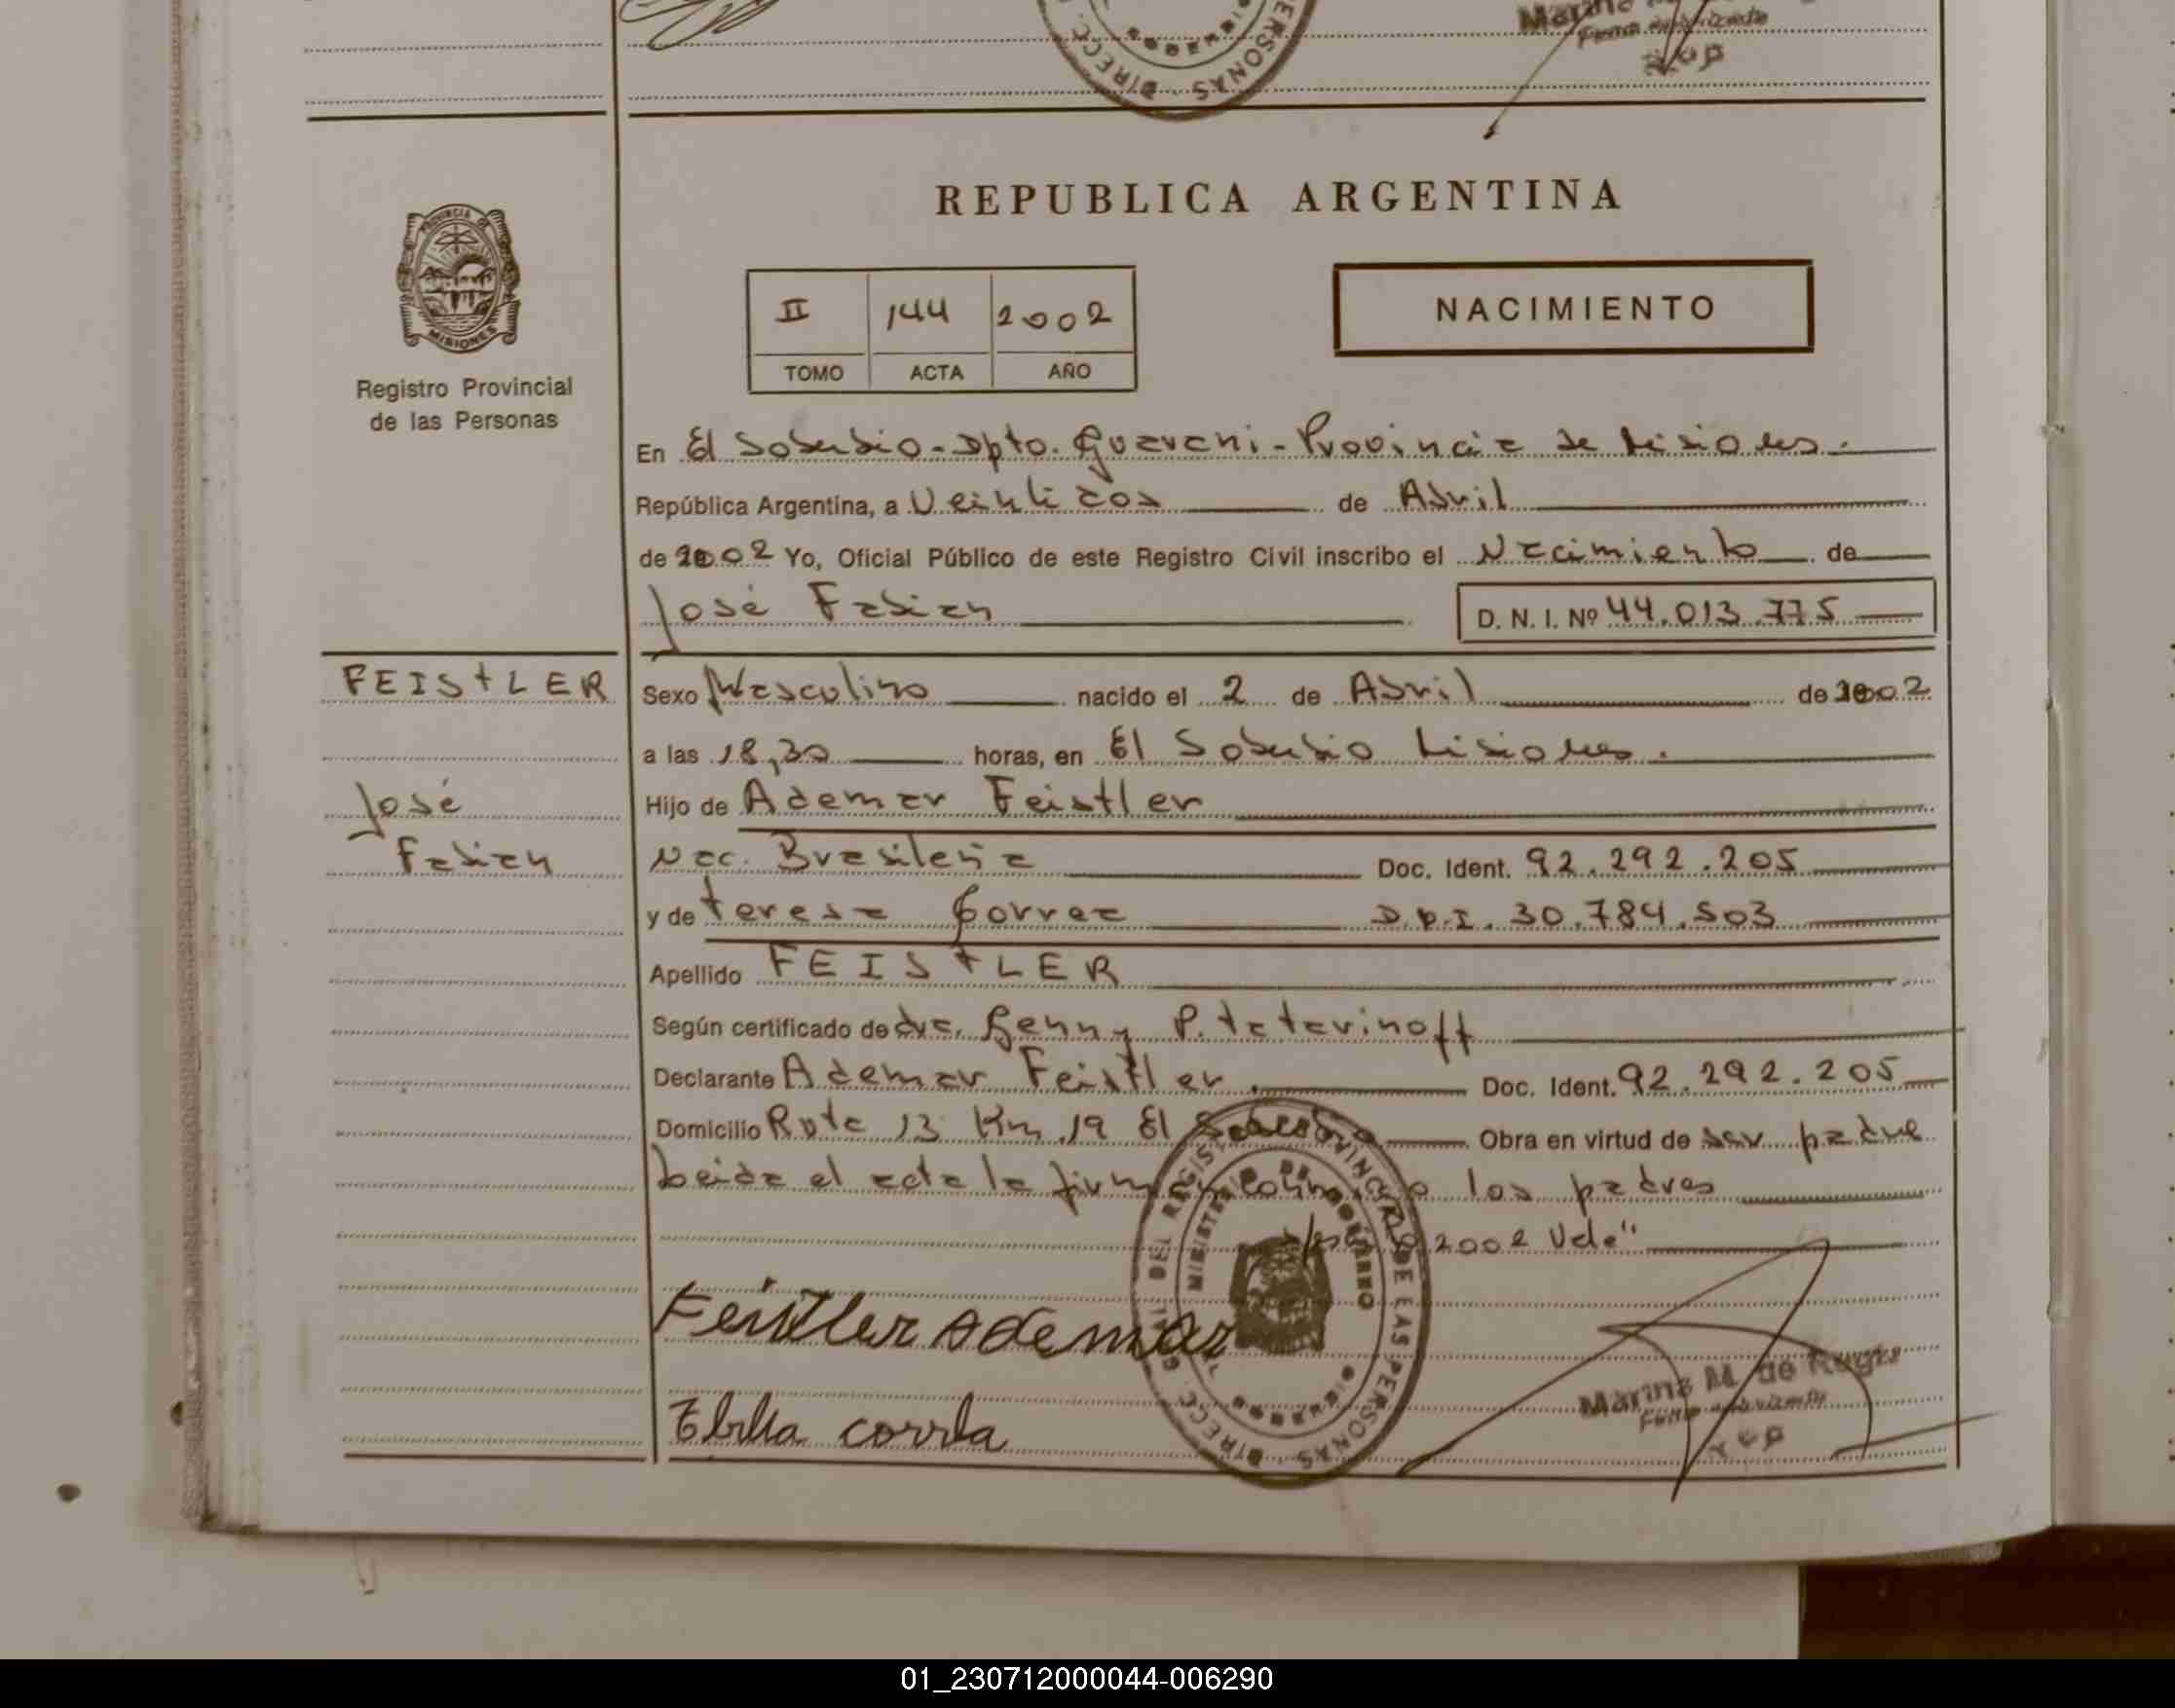 REPUBLICA ARGENTINA
PROVINCIA DE
MISIONES
Registro Provincial
de las Personas
II 144 2002
TOMO ACTA AÑO
NACIMIENTO
En El Soberbio - Dpto. Guarani - Provincia de Misiones.
República Argentina, a Veintidos de Abril
de 2002 Yo, Oficial Público de este Registro Civil inscribo el Nacimiento de
José Fabian D. N. I. Nº 44.013.775
FEIStLER
José
Fabian
Sexo Masculino nacido el 2 de Abril de 2002
a las 18,30 horas, en El Soberbio Misiones.
Hijo de Ademar Feistler
Nac. Brasileña Doc. Ident. 92.292.205
y de teresa Correa D.N.I. 30.784.503
Apellido FEIStLER
Según certificado de dra. Genny P. tatarinoff
Declarante Ademar Feistler. Doc. Ident. 92.292.205
Domicilio Ruta 13 Km 19 El Soberbio Obra en virtud de ser padre
Leida el acta la firma los padres
2002 Vale"
Feistler Ademar
correa
DIRECC. GRAL. DEL REGISTRO PROVINCIAL DE LAS PERSONAS
MINISTERIO DE GOBIERNO
Marina M. de
01_230712000044-006290